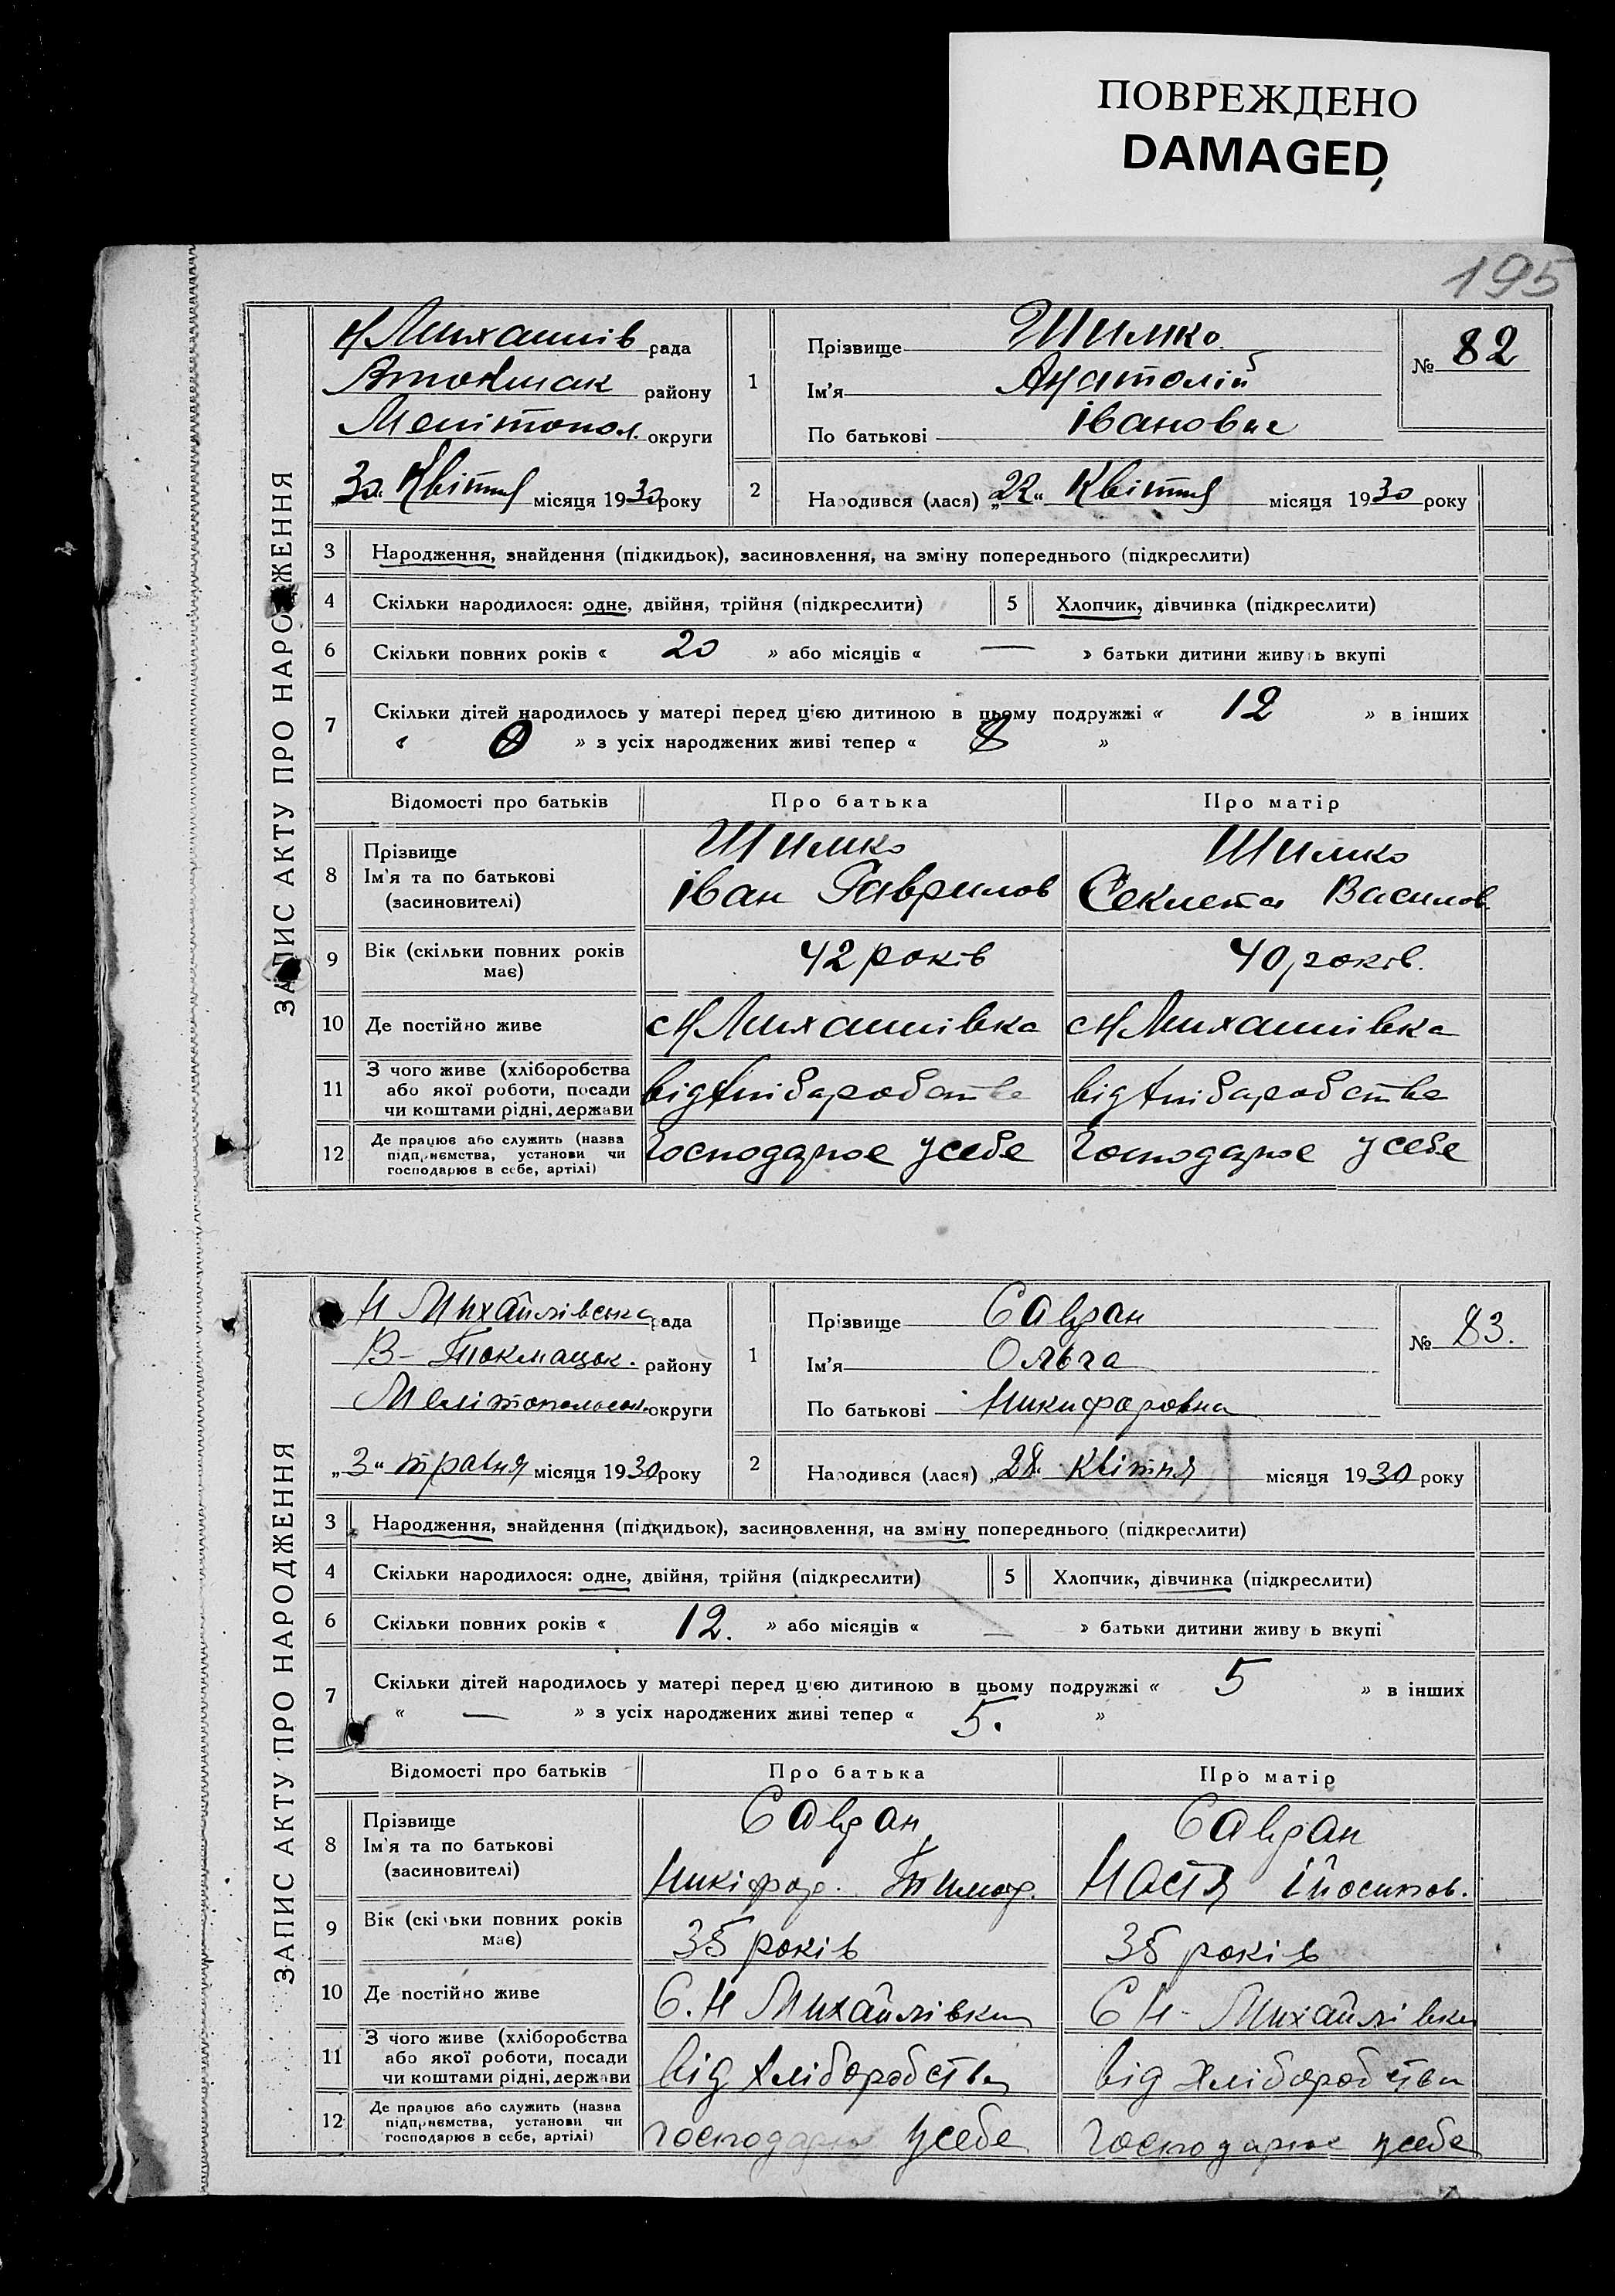 ПОВРЕЖДЕНО
DAMAGED
195
ЗАПИС АКТУ ПРО НАРОДЖЕННЯ
Н Михайлів рада
Втокмак району
Мелітопол. округи
„30“ Квітня місяця 1930 року
1
Прізвище Шимко
Ім'я Анатолій
По батькові Іванович
№ 82
2
Народився (лася) „22“ Квітня місяця 1930 року
3 Народження, знайдення (підкидьок), засиновлення, на зміну попереднього (підкреслити)
4 Скільки народилося: одне, двійня, трійня (підкреслити) 5 Хлопчик, дівчинка (підкреслити)
6 Скільки повних років « 20 » або місяців « — » батьки дитини живуть вкупі
7 Скільки дітей народилось у матері перед цією дитиною в цьому подружжі « 12 » в інших
« » з усіх народжених живі тепер « 8 »
Відомості про батьків Про батька Про матір
8 Прізвище
Ім'я та по батькові
(засиновителі)
Шимко
Іван Гаврилов
Шимко
Секлета Василов.
9 Вік (скільки повних років
має)
42 років 40 років.
10 Де постійно живе с Н Михайлівка с Н Михайлівка
11 З чого живе (хліборобства
або якої роботи, посади
чи коштами рідні, держави
від хлібаробства від хлібаробства
12 Де працює або служить (назва
підприємства, установи чи
господарює в себе, артілі)
Господарює усебе Господарює усебе
ЗАПИС АКТУ ПРО НАРОДЖЕННЯ
Н Михайлівська рада
В-Токмацьк. району
Мелітопольськ. округи
„3“ травня місяця 1930 року
1
Прізвище Савран
Ім'я Ольга
По батькові Никифоровна
№ 83.
2
Народився (лася) „28“ квітня місяця 1930 року
3 Народження, знайдення (підкидьок), засиновлення, на зміну попереднього (підкреслити)
4 Скільки народилося: одне, двійня, трійня (підкреслити) 5 Хлопчик, дівчинка (підкреслити)
6 Скільки повних років « 12. » або місяців « — » батьки дитини живуть вкупі
7 Скільки дітей народилось у матері перед цією дитиною в цьому подружжі « 5 » в інших
« — » з усіх народжених живі тепер « 5. »
Відомості про батьків Про батька Про матір
8 Прізвище
Ім'я та по батькові
(засиновителі)
Савран
Никіфор. Тимоф.
Савран
Настя Йосипов.
9 Вік (скільки повних років
має)
35 років 35 років
10 Де постійно живе С. Н Михайлівки С Н - Михайлівки
11 З чого живе (хліборобства
або якої роботи, посади
чи коштами рідні, держави
від хліборобства від хліборобства
12 Де працює або служить (назва
підприємства, установи чи
господарює в себе, артілі)
господарює усебе господарює усебе